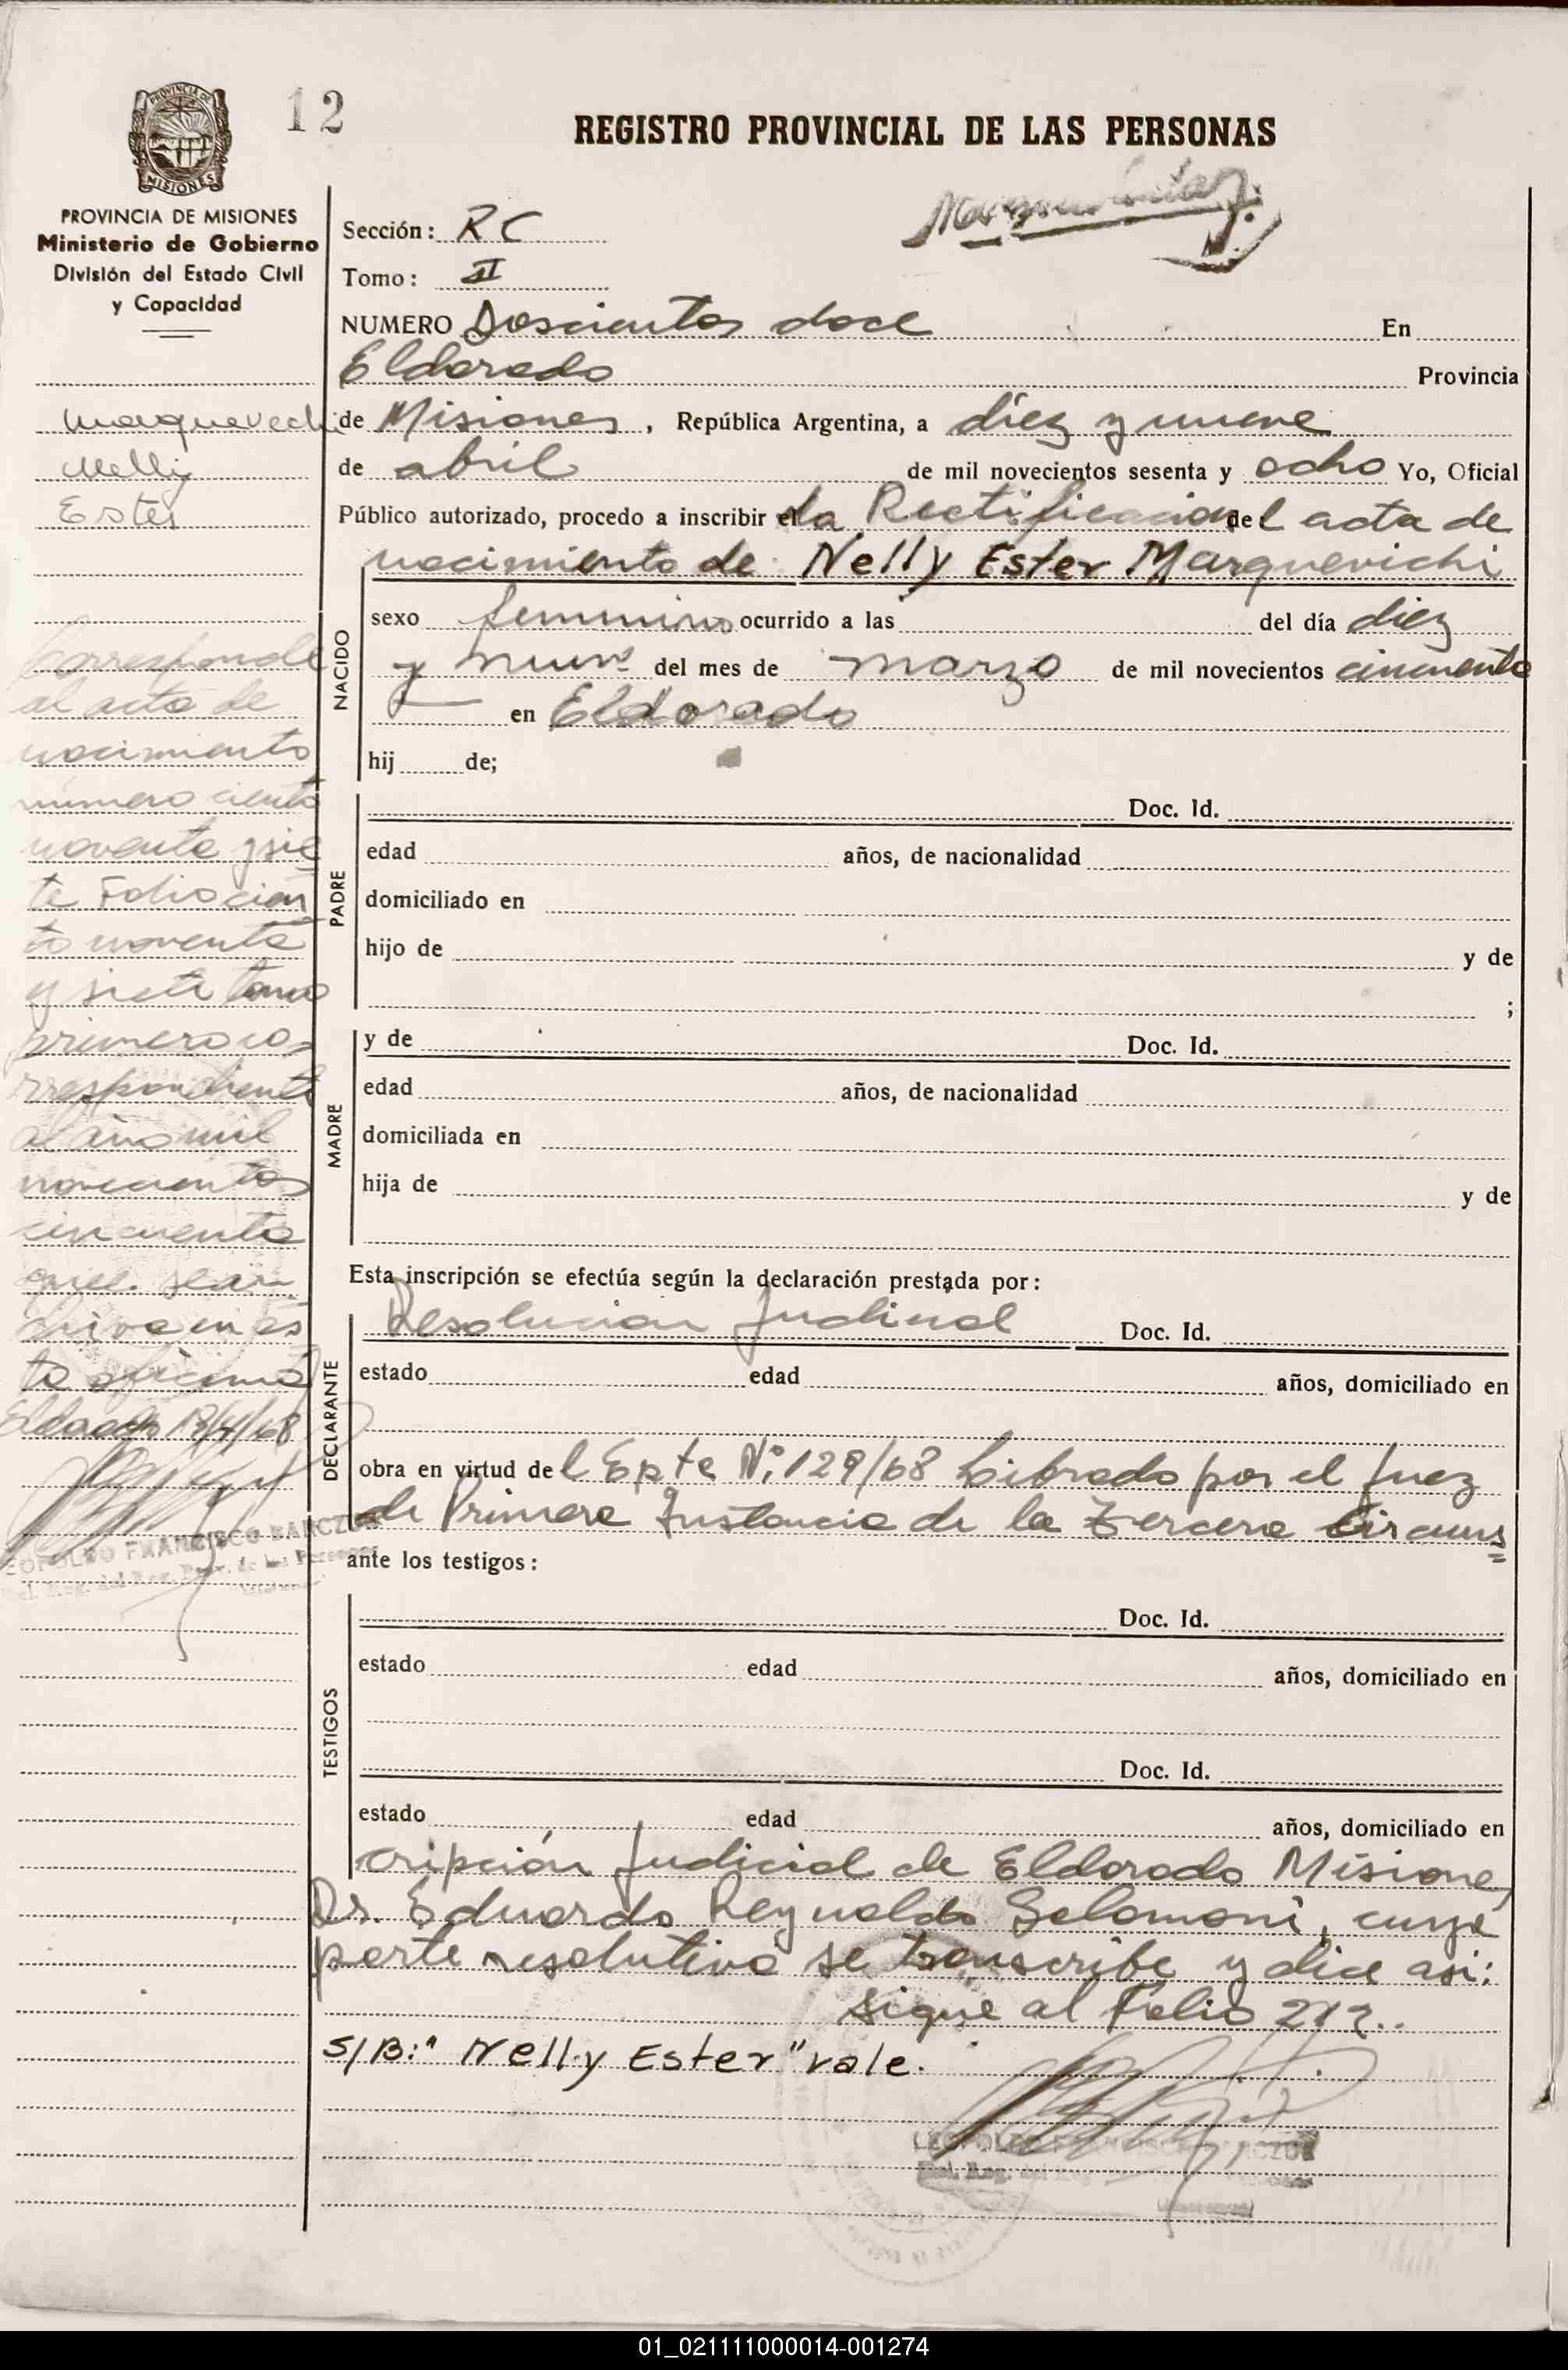 12
REGISTRO PROVINCIAL DE LAS PERSONAS
PROVINCIA DE
MISIONES
PROVINCIA DE MISIONES
Ministerio de Gobierno
División del Estado Civil
y Capacidad
Marquevechi
Nelly
Ester
Corresponde
al acta de
nacimiento
número ciento
noventa y sie
te Folio cien
to noventa
y siete tomo
primero co
rrespondiente
al año mil
novecientos
cincuenta
que se ar
chiva en es
ta oficina
Eldorado 19/4/68
LEOPOLDO FRANCISCO
Sección: RC
Tomo: II
NUMERO Doscientos doce En
Eldorado Provincia
de Misiones, República Argentina, a diez y nueve
de abril de mil novecientos sesenta y ocho Yo, Oficial
Público autorizado, procedo a inscribir el la Rectificacion del acta de
nacimiento de Nelly Ester Marquevichi
NACIDO
sexo femenino ocurrido a las del día diez
y nueve del mes de marzo de mil novecientos cincuenta
en Eldorado
hij de;
PADRE
Doc. Id.
edad años, de nacionalidad
domiciliado en
hijo de y de
;
MADRE
y de Doc. Id.
edad años, de nacionalidad
domiciliada en
hija de y de
Esta inscripción se efectúa según la declaración prestada por:
DECLARANTE
Resolucion Judicial Doc. Id.
estado edad años, domiciliado en
obra en virtud del Epte Nº 129/68 Librado por el Juez
de Primera Instancia de la Tercera Circuns
ante los testigos:
TESTIGOS
Doc. Id.
estado edad años, domiciliado en
Doc. Id.
estado edad años, domiciliado en
cripción Judicial de Eldorado Misiones
Dr. Eduardo Reynaldo Selomoni, cuya
parte resolutiva se transcribe y dice asi:
sigue al Folio 212..
S/B: "Nelly Ester" vale.
01_021111000014-001274